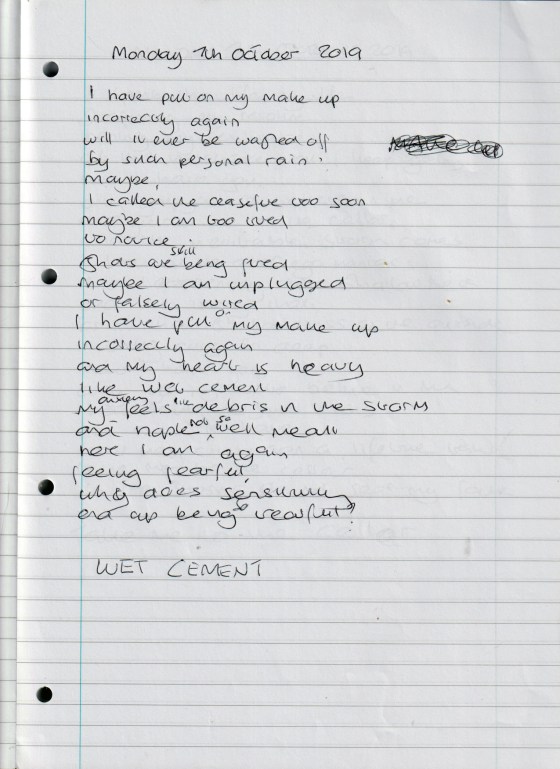 Monday 7th October 2019
I have put on my make up
incorrectly again
will it ever be washed off
by such personal rain.
maybe,
I called the ceasefire too soon
maybe I am too tired
to notice
Shots are still being fired
maybe I am unplugged
or falsely wired
I have put on my make up
incorrectly again
and my heart is heavy
like wet cement
my feels like debris in the storm
and not so well meant
here I am again
feeling fearful,
why does sensitivity
end up being so tearful?
WET CEMENT